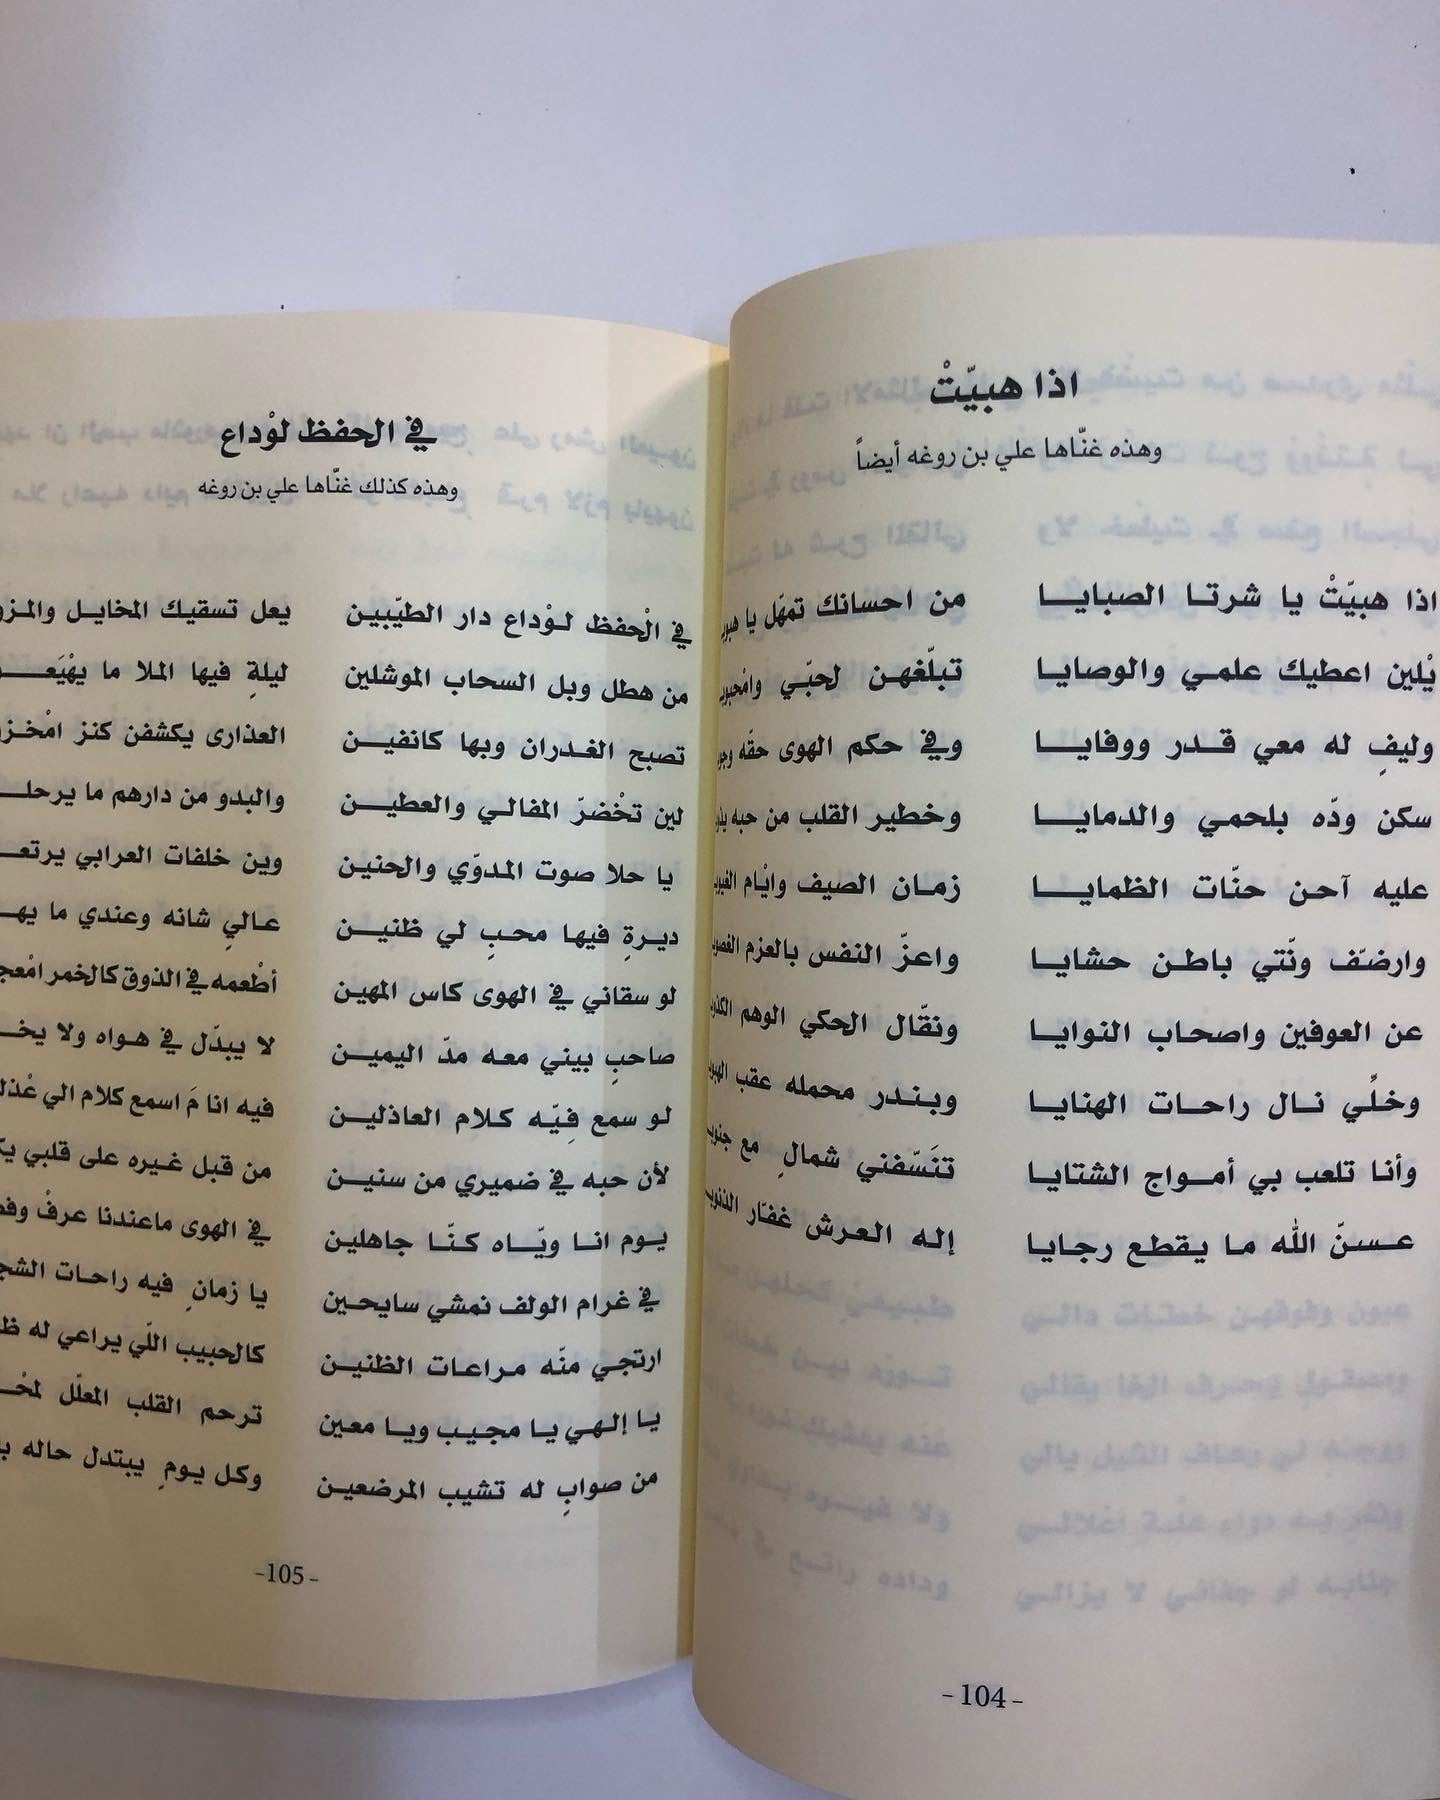 اذا هبيّتْ
وهذه غنّاها علي بن روغه أيضاً
اذا هبيّتْ يا شرتا الصبايا من احسانك تمهّل يا
يْلين اعطيك علمي والوصايا تبلّغهن لحبّي
وليفٍ له معي قدر ووفايا وفي حكم الهوى حقّه
سكن ودّه بلحمي والدمايا وخطير القلب من حبه
عليه آحن حنّات الظمايا زمان الصيف وايْام
وارضّف ونّتي باطن حشايا واعزّ النفس بالعزم
عن العوفين واصحاب النوايا ونقّال الحكي الوهم
وخلّي نال راحات الهنايا وبندر محمله عقب
وأنا تلعب بي أمواج الشتايا تنَسّفني شمالٍ مع
عسنّ الله ما يقطع رجايا إله العرش غفّار
- 104 -
في الحفظ لوْداع
وهذه كذلك غنّاها علي بن روغه
في الْحفظ لوْداع دار الطيّبين يعل تسقيك المخايل
من هطل وبل السحاب الموشلين ليلةٍ فيها الملا ما
تصبح الغدران وبها كانفين العذارى يكشفن كنز
لين تخْضرّ المفالي والعطين والبدو من دارهم ما
يا حلا صوت المدوّي والحنين وين خلفات العرابي
ديرةٍ فيها محبٍ لي ظنين عالي شانه وعندي ما
لو سقاني في الهوى كاس المهين أطْعمه في الذوق كالخمر
صاحبٍ بيني معه مدّ اليمين لا يبدّل في هواه ولا
لو سمع فِيّه كلام العاذلين فيه انا مَ اسمع كلام الي
لأن حبه في ضميري من سنين من قبل غيره على قلبي
يوم انا ويّاه كنّا جاهلين في الهوى ماعندنا عرفْ
في غرام الولف نمشي سايحين يا زمانٍ فيه راحات
ارتجي منّه مراعات الظنين كالحبيب اللّي يراعي له
يا إلهي يا مجيب ويا معين ترحم القلب المعلّل
من صوابٍ له تشيب المرضعين وكل يومٍ يبتدل حاله
-105-